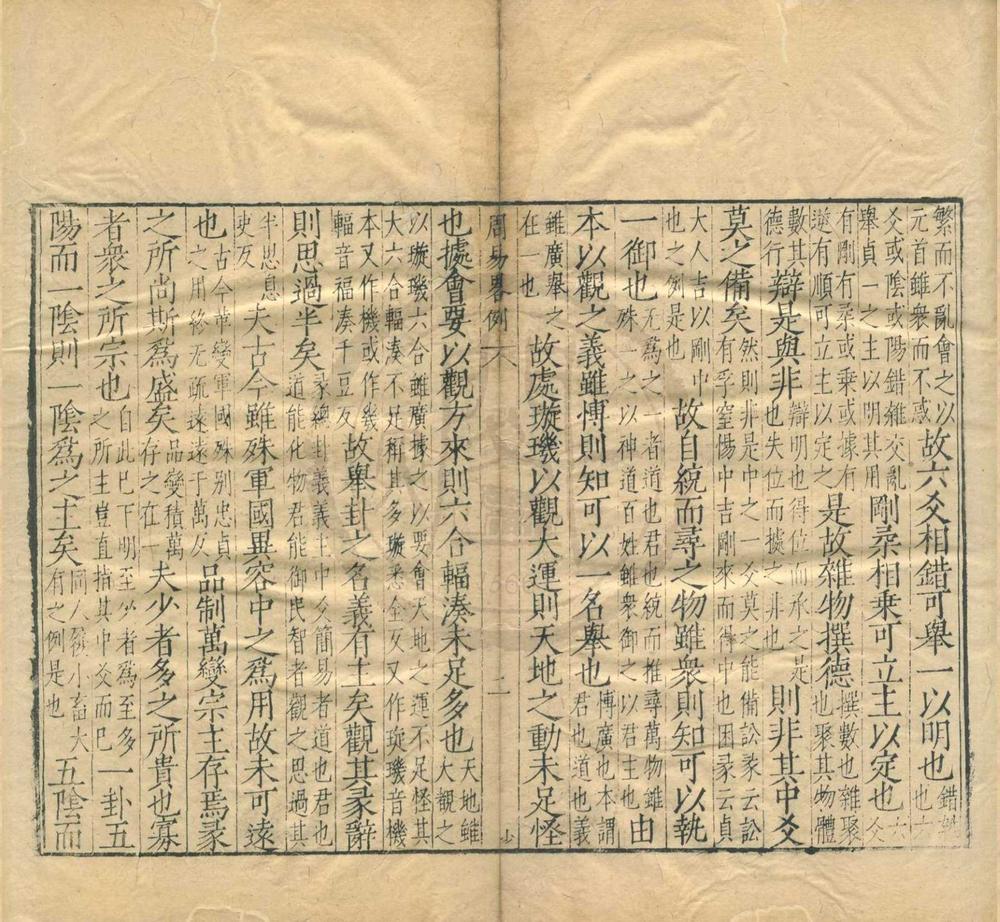 繁而不亂會之以元首雖衆而不惑故六爻相錯可舉一以明也錯雜也六
爻或陰或陽錯雜交亂舉貞一之主以明其用剛柔相乗可立主以定也六爻
有剛有柔或乗或據有逆有順可立主以定之是故雜物撰德撰數也雜聚也聚其物體
數其德行辯是與非辯明也得位而承之是也失位而據之非也則非其中爻
莫之備矣然則非是中之一爻莫之能備訟彖云訟有孚窒惕中吉剛來而得中也困彖云貞
大人吉以剛中也之例是也故自統而尋之物雖衆則知可以執
一御也无爲之一者道也君也統而推尋萬物雖殊一之以神道百姓雖衆御之以君主也由
本以觀之義雖博則知可以一名舉也博廣也本謂君也道也義
雖廣舉之在一也故處璇璣以觀大運則天地之動未足怪
周易畧例 二 少
也據會要以觀方來則六合輻湊未足多也天地雖大觀之
以璇璣六合雖廣據之以要會天地之運不足怪其大六合輻湊不足稱其多璇悉全反又作琁璣音機
本又作機或作幾輻音福湊千豆反故舉卦之名義有主矣觀其彖辭
則思過半矣彖總卦義義主中爻簡易者道也君也道能化物君能御民智者觀之思過其
半思息吏反夫古今雖殊軍國異容中之爲用故未可遠
也古今革變軍國殊别忠貞之用終无疏遠遠于萬反品制萬變宗主存焉彖
之所尚斯爲盛矣品變積萬存之在一夫少者多之所貴也寡
者衆之所宗也自此已下明至少者爲至多之所主豈直指其中爻而已一卦五
陽而一陰則一陰爲之主矣同人履小畜大有之例是也五陰而